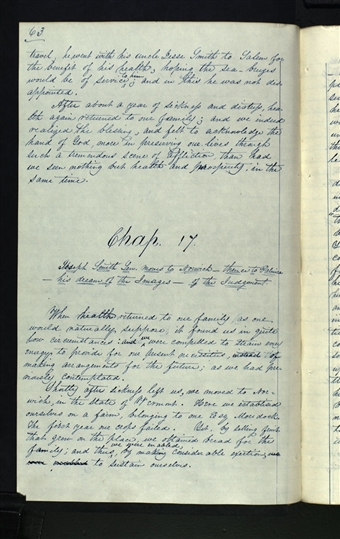 63
travel, he went with his uncle Jesse Smith to Salem for
the benefit of his health; hoping the sea-breezes
would be of service to him; and in this he was not dis-
appointed.
After about a year of sickness and distress, hea-
lth again returned to our family; and we indeed
realized the blessing, and felt to acknowledge the
hand of God, more in preserving our lives through
such a tremendous scene of affliction, than had
we seen nothing but health and prosperity, in the
same time.
Chap. 17.
Joseph Smith Sen. moves to Norwich — thence to
— his dream of the Images — of the Judgment
When health returned to our family, as one
would naturally suppose, it found us in quite
low circumstances; and we were compelled to strain every
energy to provide for our present necessities, instead of
making arrangements for the future; as we had pre-
viously contemplated.
Shortly after sickness left us, we moved to Nor-
wich, in the State of Vermont. Here we established
ourselves on a farm, belonging to one Esq. Moredock.
The first year our crops failed. But, by selling fruit
that grew on the place, we obtained bread for the
family; and thus, by making considerable exertion, we were enabled
to sustain ourselves.